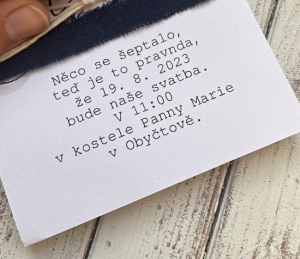 Něco se šeptalo,
teď je to pravnda,
že 19. 8. 2023
bude naše svatba.
V 11:00
v kostele Panny Marie
v Obyčtově.